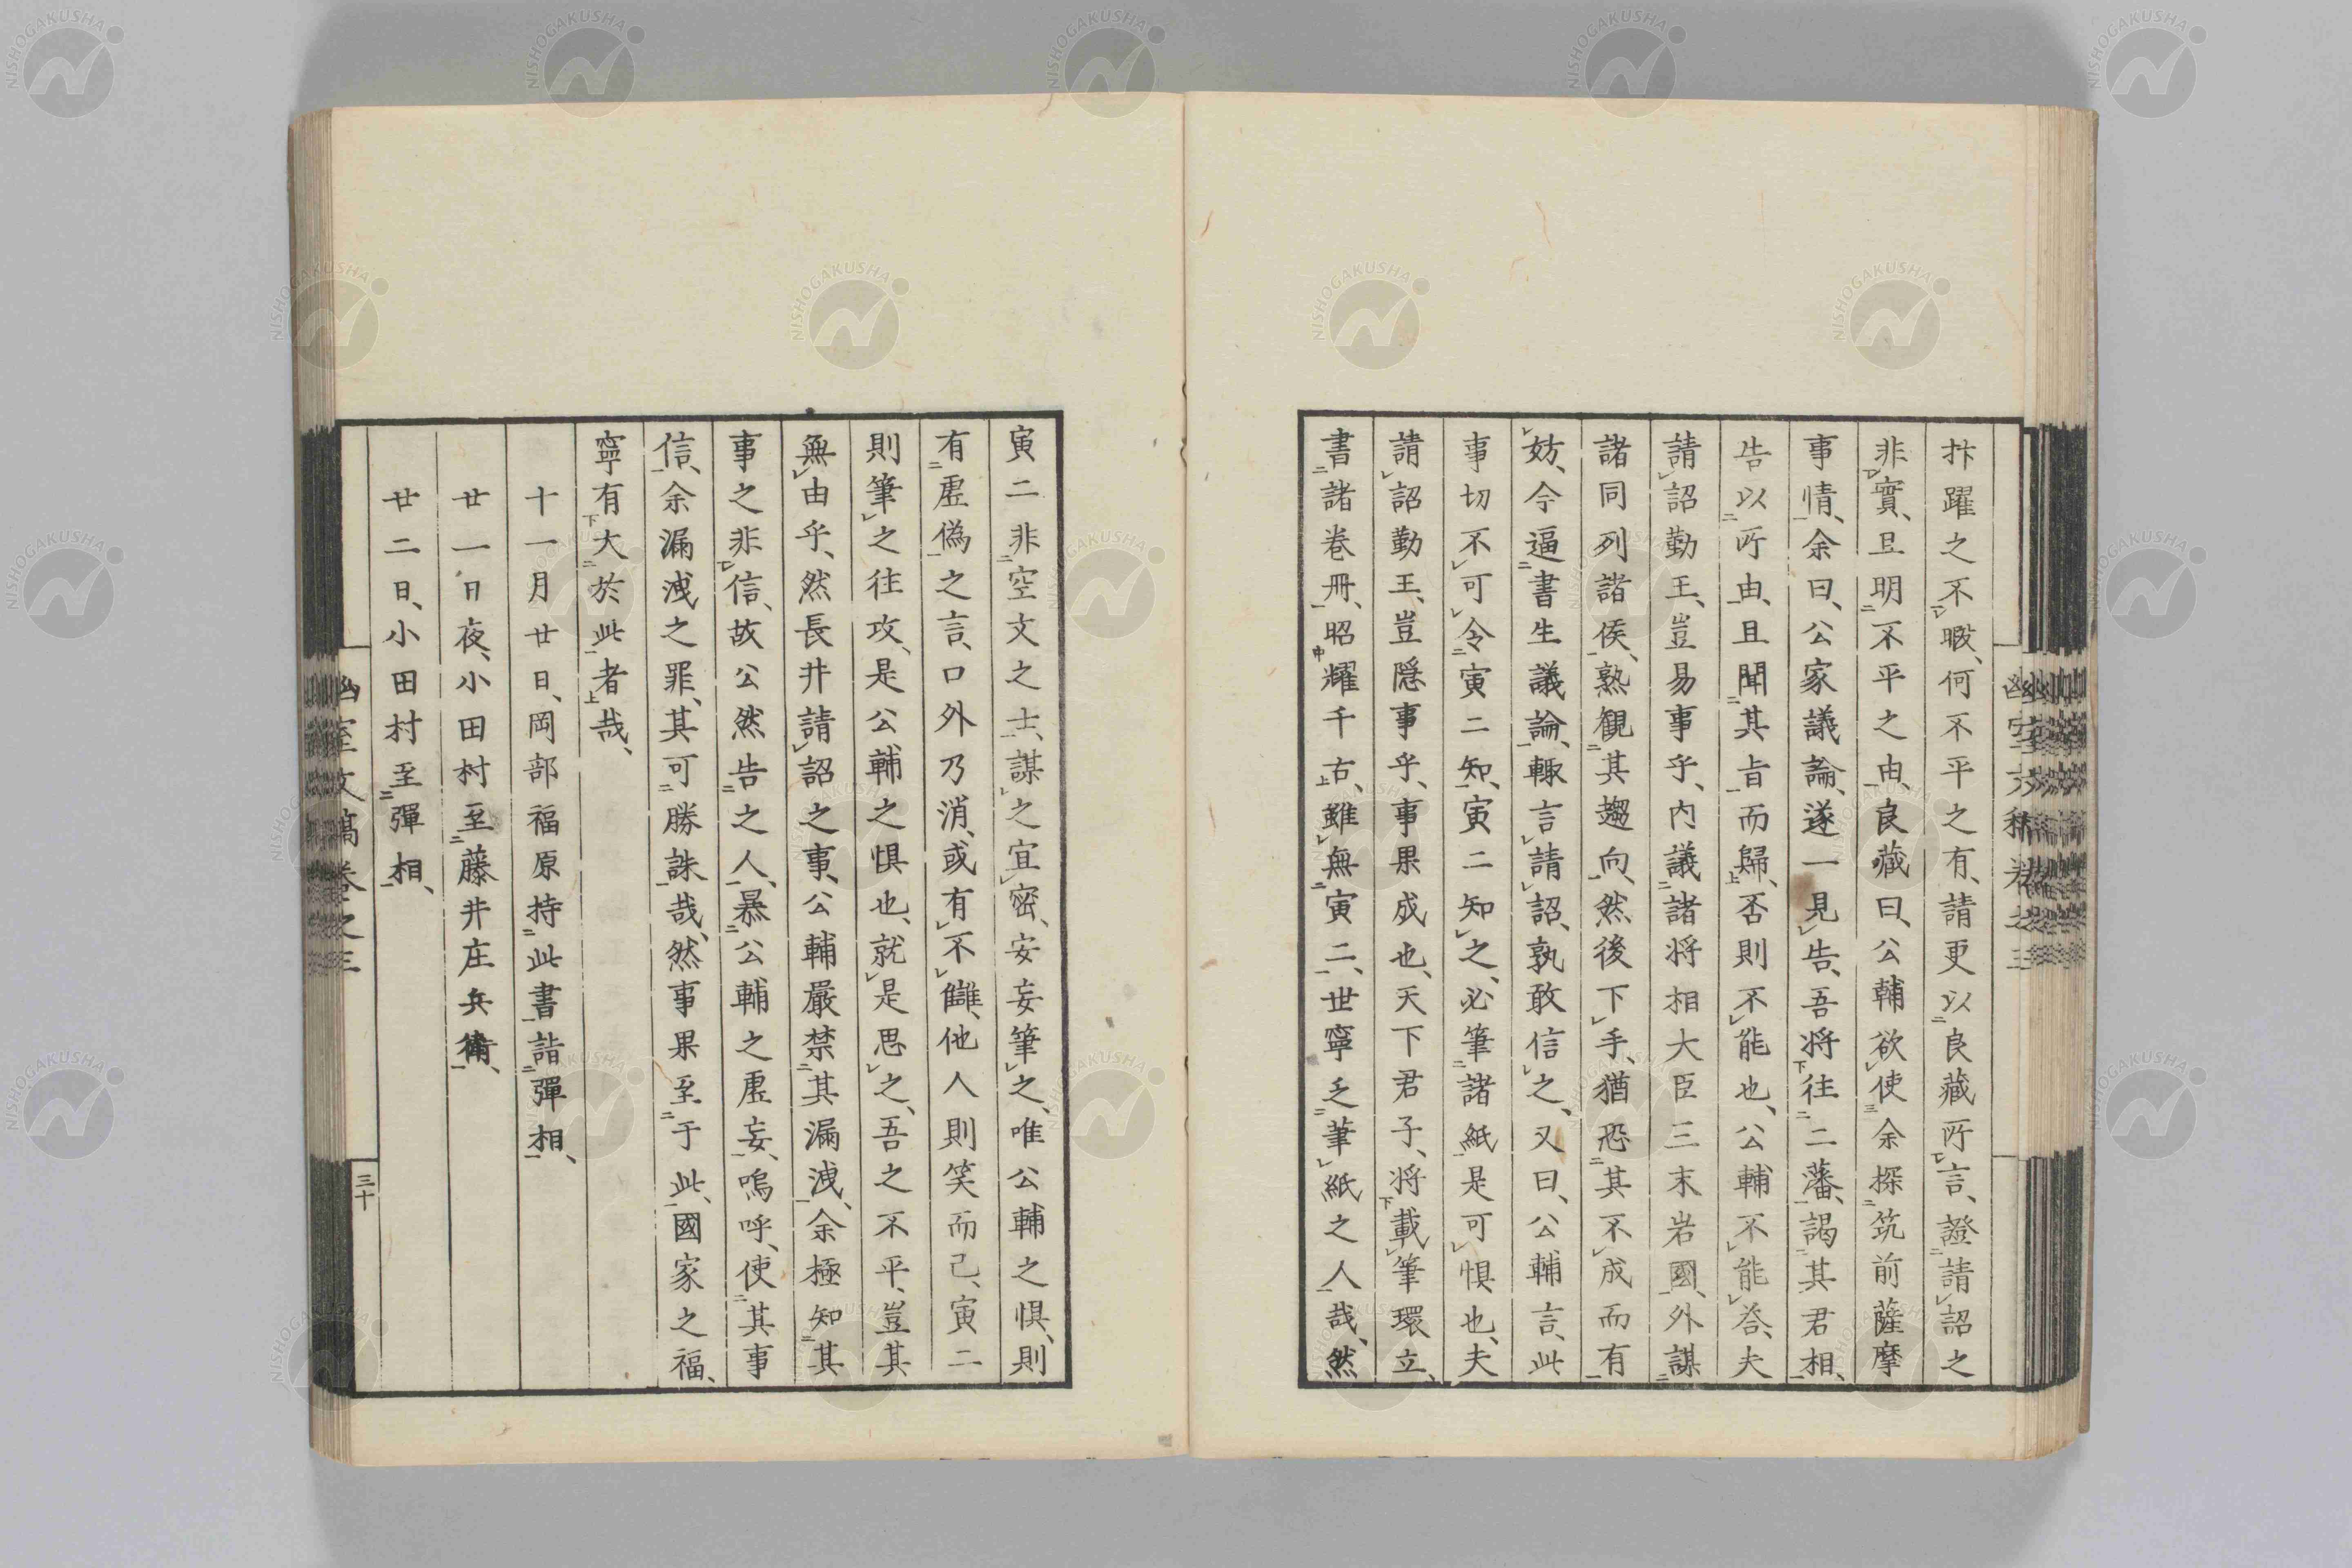 抃躍之不暇、何不平之有、請更以良藏所言、證請詔之
非實、且明不平之由、良藏曰、公輔欲使余探筑前薩摩
事情、余曰、公家議論、遂一見告、吾将往二藩、謁其君相、
告以所由、且聞其旨而歸、否則不能也、公輔不能答、夫
請詔勤王、豈易事乎、內議諸将相大臣三末岩國、外謀
諸同列諸侯、熟觀其趨向、然後下手、猶恐其不成而有
妨、今逼書生議論、輙言請詔、孰敢信之、又曰、公輔言、此
事切不可令寅二知、寅二知之、必筆諸紙、是可惧也、夫
請詔勤王、豈隱事乎、事果成也、天下君子、将載筆環立、
書諸卷冊、昭耀千古、雖無寅二、世寧乏筆紙之人哉、然
寅二非空文之士、謀之宜密、安妄筆之、唯公輔之惧、則
有虛偽之言、口外乃消、或有不讎、他人則笑而已、寅二
則筆之往攻、是公輔之惧也、就是思之、吾之不平、豈其
無由乎、然長井請詔之事、公輔嚴禁其漏洩、余極知其
事之非信、故公然告之人、暴公輔之虛妄、嗚呼、使其事
信、余漏洩之罪、其可勝誅哉、然事果至于此、國家之福、
寧有大於此者哉、
十一月廿日、岡部福原持此書詣彈相、
廿一日夜、小田村至藤井庄兵衛、
廿二日、小田村至彈相、
幽室文稿卷之三
三十